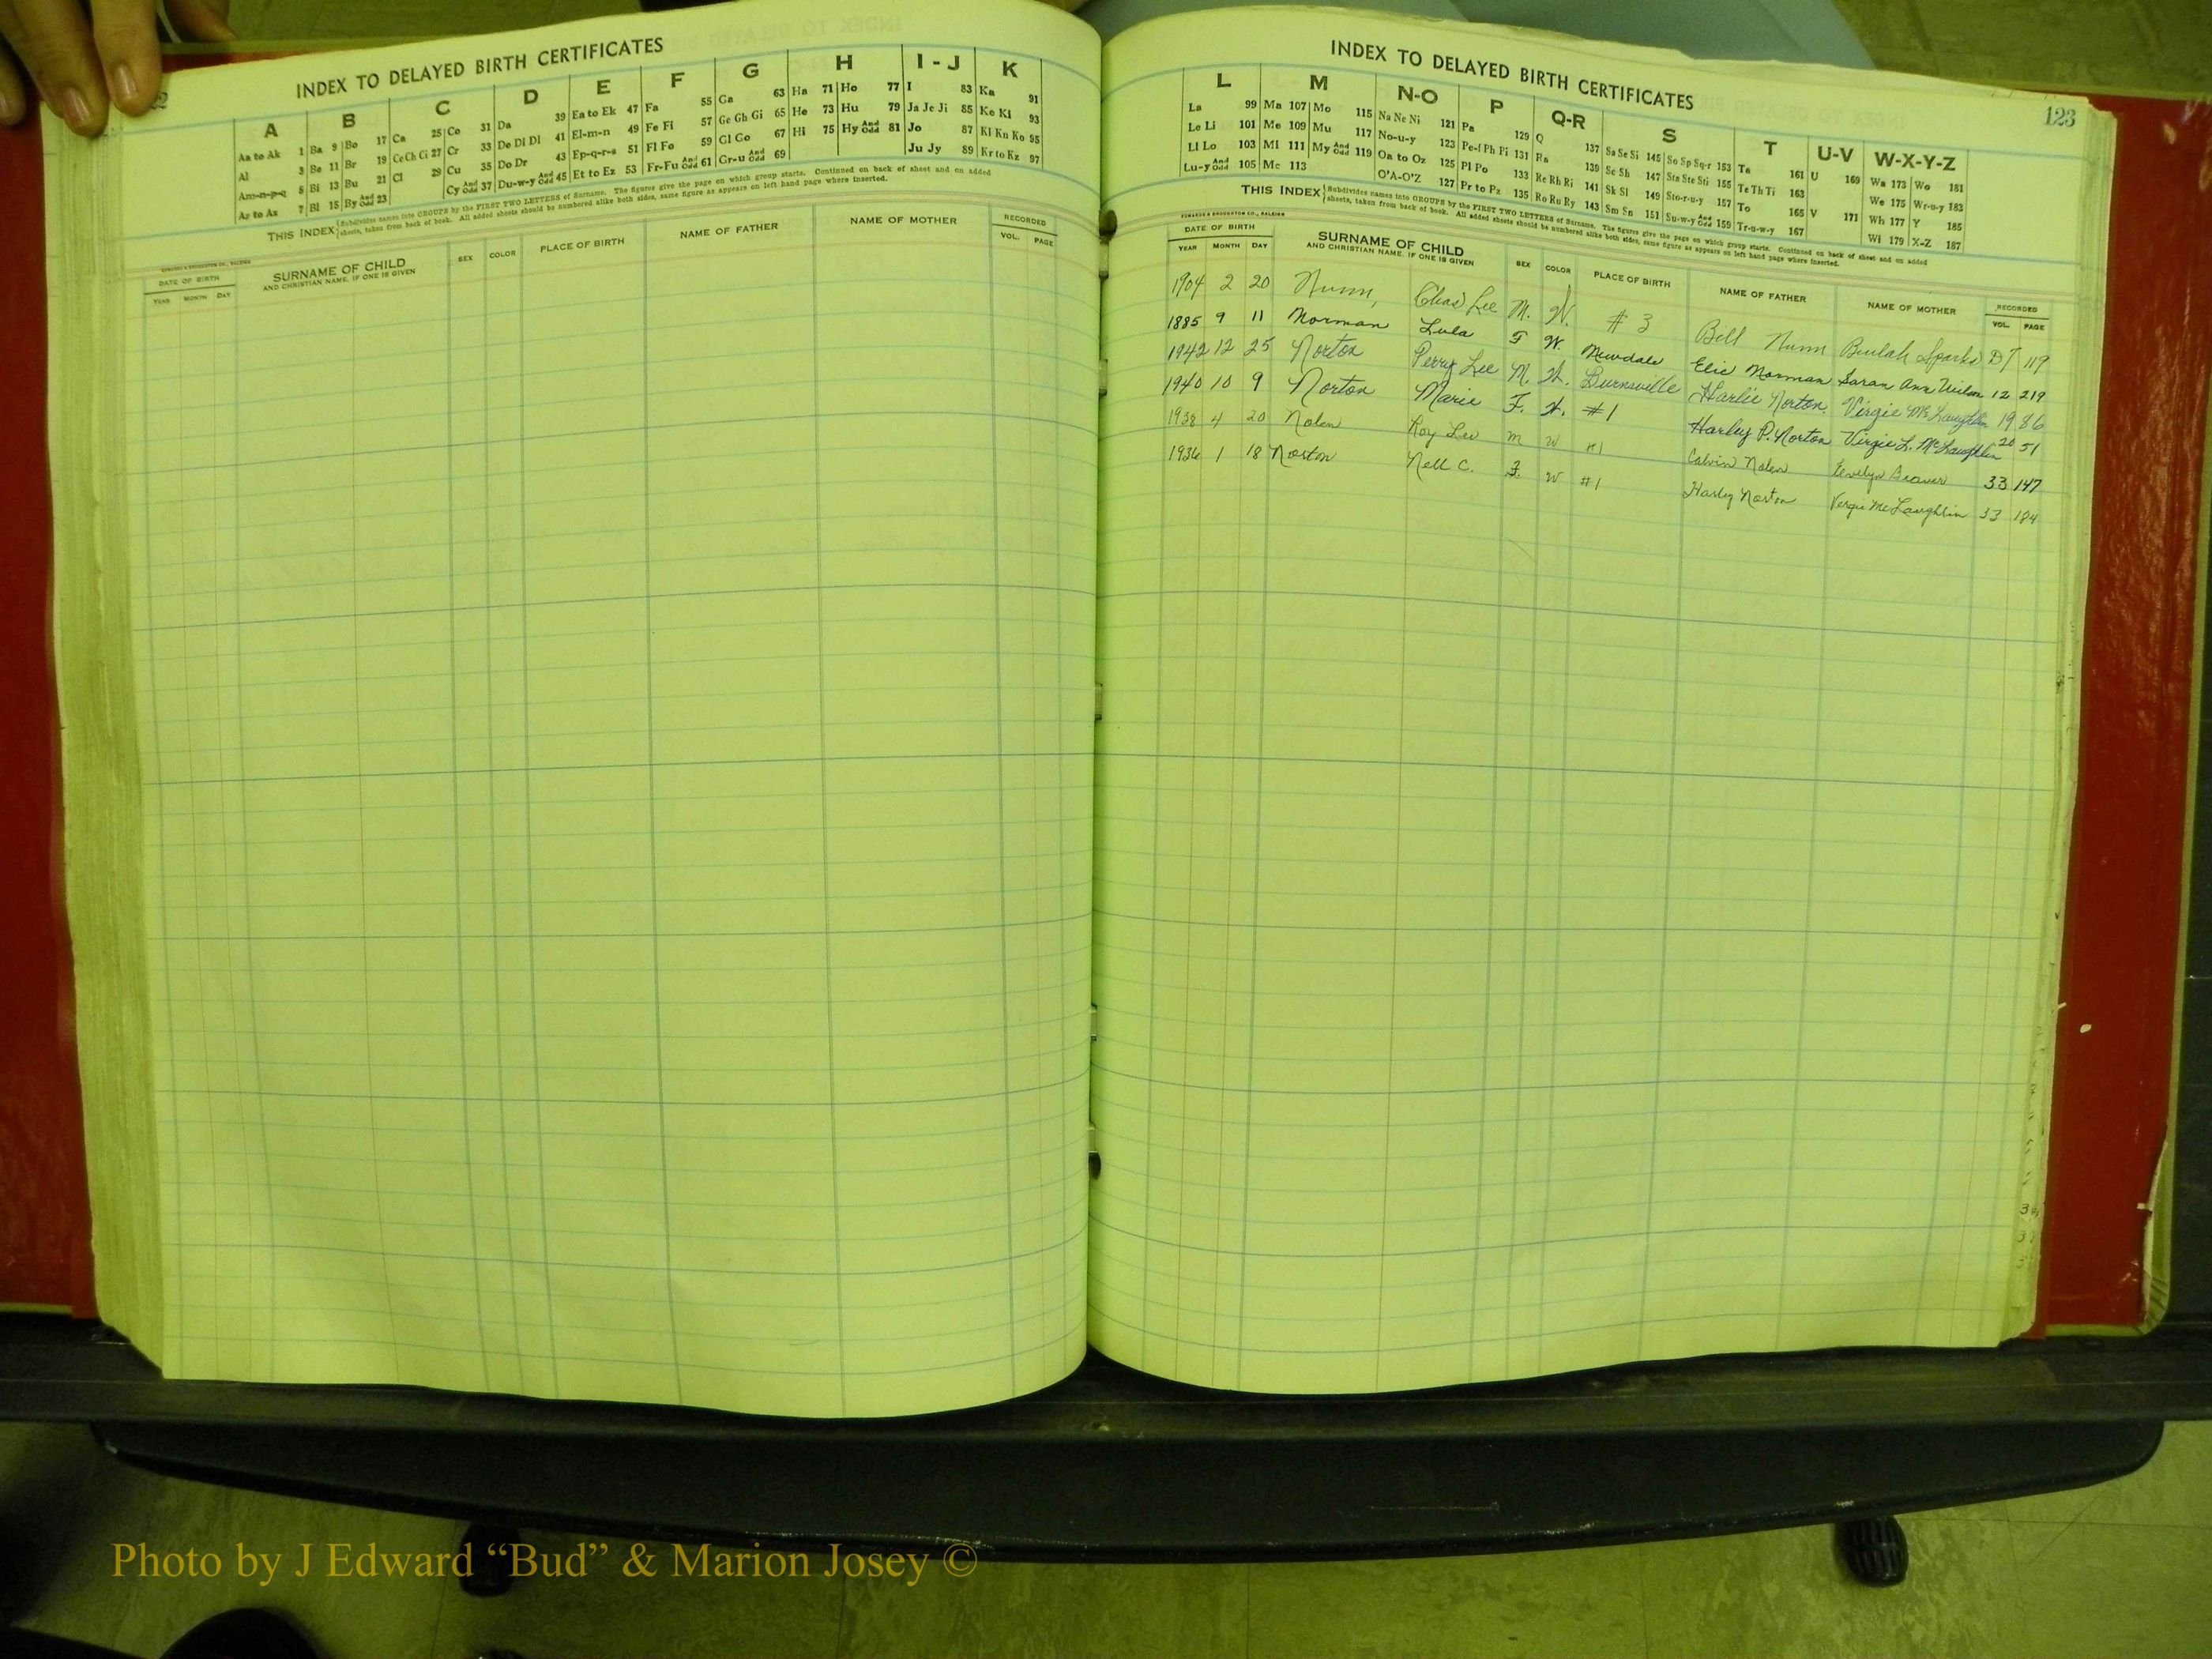 INDEX TO DELAYED BIRTH CERTIFICATES
A B C D E F G H I-J K
Aa to Ak 1 Ba 9 Bo 17 Ca 25 Co 31 Da 39 Ea to Ek 47 Fa 55 Ga 63 Ha 71 Ho 77 I 83 Ka 91
Al 3 Be 11 Br 19 Ce Ch Ci 27 Cr 33 De Di Dl 41 El-m-n 49 Fe Fi 57 Ge Gh Gi 65 He 73 Hu 79 Ja Je Ji 85 Ke Ki 93
Am-n-p-q 5 Bi 13 Bu 21 Cl 29 Cu 35 Do Dr 43 Ep-q-r-s 51 Fl Fo 59 Gl Go 67 Hi 75 Hy And Odd 81 Jo 87 Kl Kn Ko 95
Ar to Az 7 Bl 15 By And Odd 23 Cy And Odd 37 Du-w-y And Odd 45 Et to Ez 53 Fr-Fu And Odd 61 Gr-u And Odd 69 Ju Jy 89 Kr to Kz 97
THIS INDEX Subdivides names into GROUPS by the FIRST TWO LETTERS of Surname. The figures give the page on which group starts. Continued on back of sheet and on added
sheets, taken from back of book. All added sheets should be numbered alike both sides, same figure as appears on left hand page where inserted.
DATE OF BIRTH SURNAME OF CHILD SEX COLOR PLACE OF BIRTH NAME OF FATHER NAME OF MOTHER RECORDED
YEAR MONTH DAY AND CHRISTIAN NAME, IF ONE IS GIVEN VOL. PAGE
INDEX TO DELAYED BIRTH CERTIFICATES
123
L M N-O P Q-R S T U-V W-X-Y-Z
La 99 Ma 107 Mo 115 Na Ne Ni 121 Pa 129 Q 137 Sa Se Si 145 So Sp Sq-r 153 Ta 161 U 169 Wa 173 Wo 181
Le Li 101 Me 109 Mu 117 No-u-y 123 Pe-f Ph Pi 131 Ra 139 Sc Sh 147 Sta Ste Sti 155 Te Th Ti 163 We 175 Wr-u-y 183
Ll Lo 103 Mi 111 My And Odd 119 Oa to Oz 125 Pl Po 133 Re Rh Ri 141 Sk Sl 149 Sto-r-u-y 157 To 165 V 171 Wh 177 Y 185
Lu-y And Odd 105 Mc 113 O'A-O'Z 127 Pr to Pz 135 Ro Ru Ry 143 Sm Sn 151 Su-w-y And Odd 159 Tr-u-w-y 167 Wi 179 X-Z 187
THIS INDEX Subdivides names into GROUPS by the FIRST TWO LETTERS of Surname. The figures give the page on which group starts. Continued on back of sheet and on added
sheets, taken from back of book. All added sheets should be numbered alike both sides, same figure as appears on left hand page where inserted.
EDWARDS & BROUGHTON CO., RALEIGH
DATE OF BIRTH SURNAME OF CHILD SEX COLOR PLACE OF BIRTH NAME OF FATHER NAME OF MOTHER RECORDED
YEAR MONTH DAY AND CHRISTIAN NAME, IF ONE IS GIVEN VOL. PAGE
1904 2 20 Nunn, Chas Lee M. W. #3 Bill Nunn Beulah Sparks D7 119
1885 9 11 Norman Lula F W. Newdale Elic Norman Saran Ann Wilson 12 219
1942 12 25 Norton Perry Lee M. W. Burnsville Harlie Norton Virgie McLaughlin 19 86
1940 10 9 Norton Marie F. W. #1 Harley P. Norton Virgie L. McLaughlin 20 51
1938 4 20 Nolen Roy Lee M W #1 Calvin Nolen Evelyn Beaver 33 147
1936 1 18 Norton Nell C. F. W #1 Harley Norton Vergie McLaughlin 33 184
Photo by J Edward “Bud” & Marion Josey ©